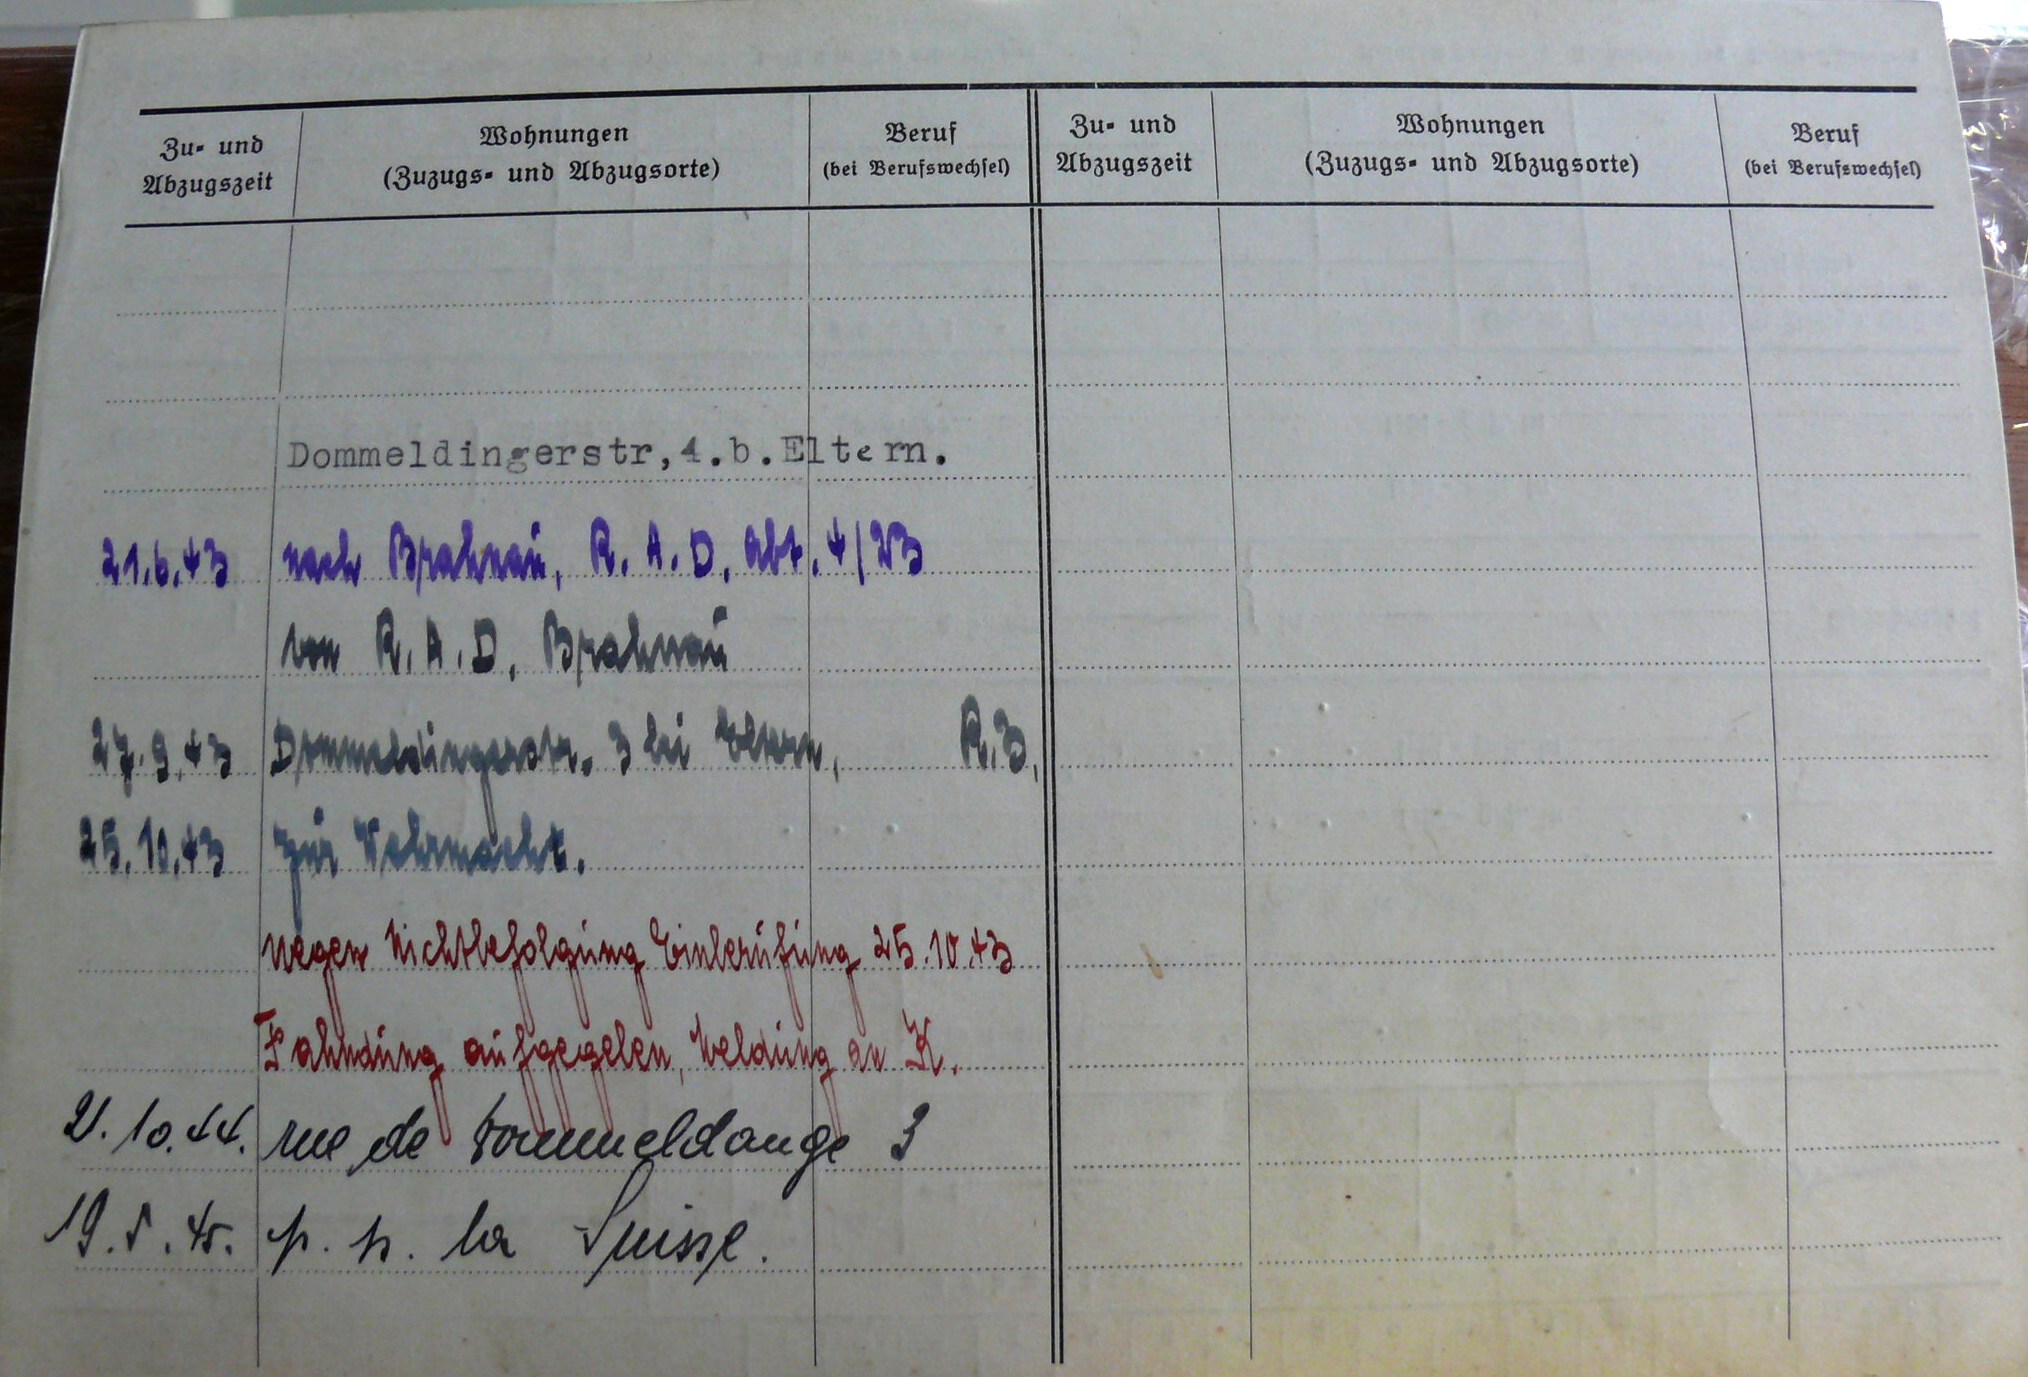 Zu- und Abzugszeit
Wohnungen
(Zuzugs- und Abzugsorte)
Beruf
(bei Berufswechsel)
Zu- und Abzugszeit
Wohnungen
(Zuzugs- und Abzugsorte)
Beruf
(bei Berufswechsel)
Dommeldingerstr,4.b.Eltern.
21.6.43 nach Brahnau, R.A.D. Abt. 4/23
von R.A.D. Brahnau
27.9.43 Dommeldingerstr. 3 bei Eltern, R.B.
25.10.43 zur Wehrmacht.
wegen Nichtbefolgung Einberufung 25.10.43
Fahndung aufgegeben, Meldung an K.
21.10.44. rue de Dommeldange 3
19.5.45. p. p. la Suisse.